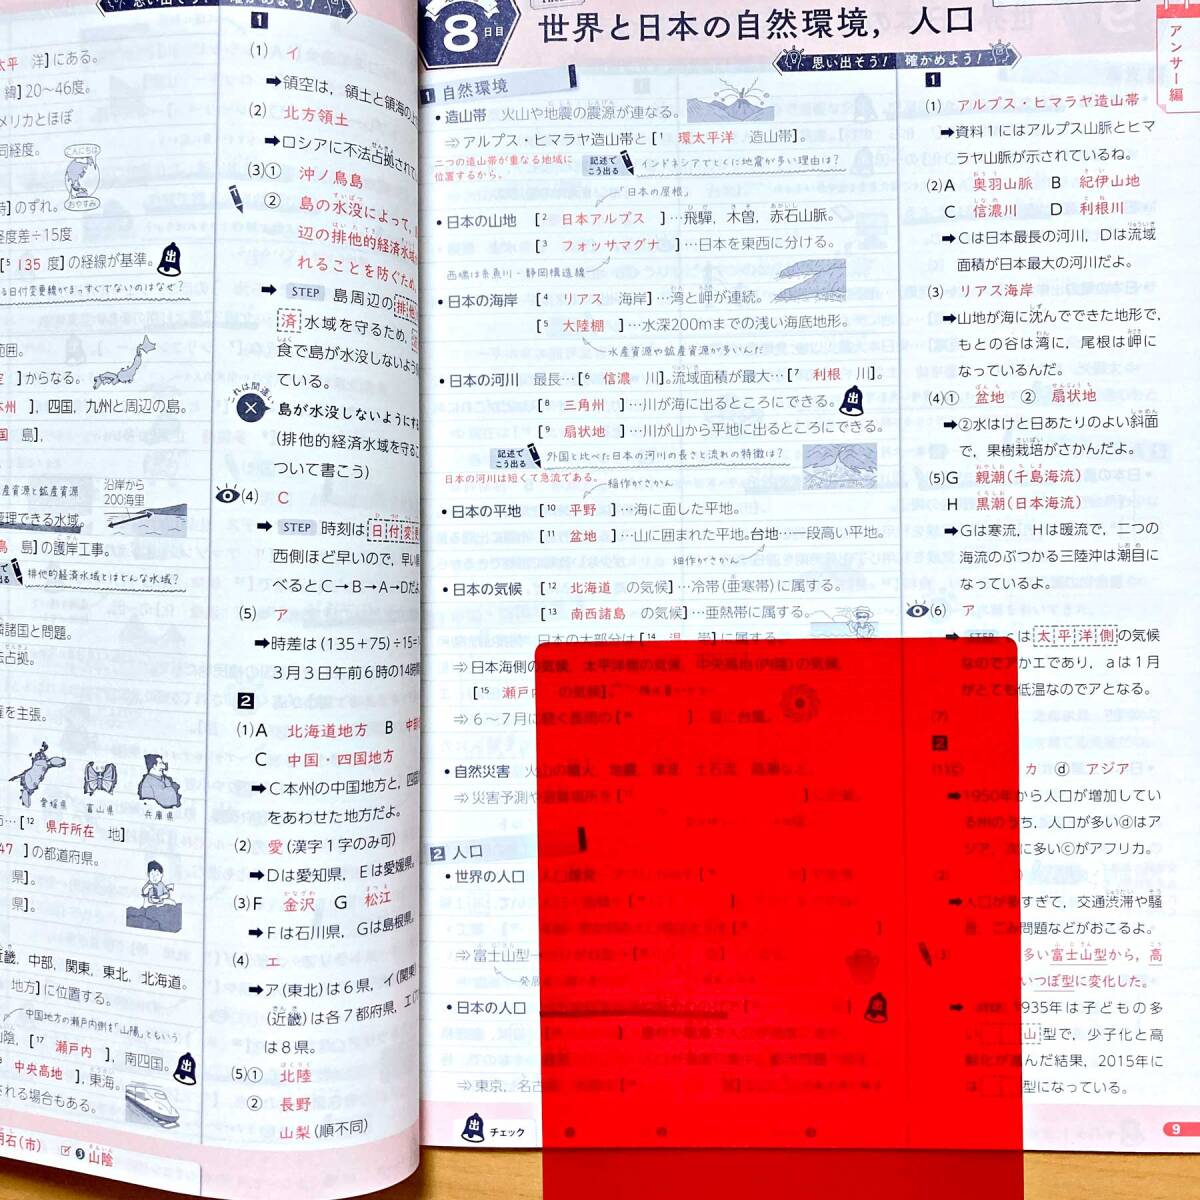 思い出そう！ 確かめよう！
太平 洋]にある。
緯]20～46度。
メリカとほぼ
同経度。
こんにちは
おやすみ
時]のずれ。
経度差÷15度
[⁵ 135 度]の経線が基準。
出
る日付変更線がまっすぐでないのはなぜ？
範囲。
]からなる。
本州 ]，四国，九州と周辺の島。
国 島]，
産資源と鉱産資源
沿岸から
200海里
管理できる水域。
島 島]の護岸工事。
排他的経済水域とはどんな水域？
隣諸国と問題。
法占拠。
権を主張。
愛媛県
富山県
兵庫県
[¹² 県庁所在 地]
47 ]の都道府県。
県]。
県]。
近畿，中部，関東，東北，北海道。
地方]に位置する。
中国地方の瀬戸内側を「山陽」ともいう
山陰，[¹⁷ 瀬戸内 ]，南四国。
中央高地 ]，東海。
される場合もある。
出
明石(市)
❸ 山陰
1
(1) イ
➡領空は，領土と領海の上
(2) 北方領土
➡ロシアに不法占拠されて
(3)① 沖ノ鳥島
② 島の水没によって，
辺の排他的経済水域が
れることを防ぐため
➡ STEP 島周辺の排他
済水域を守るため，
食で島が水没しないように
ている。
これは間違い
島が水没しないようにす
(排他的経済水域を守るこ
ついて書こう)
(4) C
➡ STEP 時刻は日付変更
西側ほど早いので，早い
べるとC→B→A→Dだ
(5) ア
➡時差は(135＋75)÷15＝
3月3日午前6時の14時間
2
(1)A 北海道地方 B 中部
C 中国・四国地方
➡C本州の中国地方と，四国
をあわせた地方だよ。
(2) 愛(漢字1字のみ可)
➡Dは愛知県，Eは愛媛県。
(3)F 金沢 G 松江
➡Fは石川県，Gは島根県。
(4) エ
➡ア(東北)は6県，イ(関東)
(近畿)は各7都府県，エ
は8県。
(5)① 北陸
② 長野
山梨(順不同)
8日目
世界と日本の自然環境，人口
アンサー編
思い出そう！ 確かめよう！
1 自然環境
・造山帯 火山や地震の震源が連なる。
⇨アルプス・ヒマラヤ造山帯と[¹ 環太平洋 造山帯]。
二つの造山帯が重なる地域に
位置するから。
記述で
こう出る
インドネシアでとくに地震が多い理由は？
「日本の屋根」
・日本の山地 [² 日本アルプス ]…飛驒，木曽，赤石山脈。
[³ フォッサマグナ ]…日本を東西に分ける。
西端は糸魚川－静岡構造線
・日本の海岸 [⁴ リアス 海岸]…湾と岬が連続。
[⁵ 大陸棚 ]…水深200mまでの浅い海底地形。
水産資源や鉱産資源が多いんだ
・日本の河川 最長…[⁶ 信濃 川]。流域面積が最大…[⁷ 利根 川]。
[⁸ 三角州 ]…川が海に出るところにできる。
出
[⁹ 扇状地 ]…川が山から平地に出るところにできる。
記述で
こう出る
外国と比べた日本の河川の長さと流れの特徴は？
日本の河川は短くて急流である。
稲作がさかん
・日本の平地 [¹⁰ 平野 ]…海に面した平地。
[¹¹ 盆地 ]…山に囲まれた平地。台地…一段高い平地。
畑作がさかん
・日本の気候 [¹² 北海道 の気候]…冷帯(亜寒帯)に属する。
[¹³ 南西諸島 の気候]…亜熱帯に属する。
日本の大部分は[¹⁴ 温 帯]に属する。
⇨日本海側の気候，太平洋側の気候，中央高地(内陸)の気候，
[¹⁵ 瀬戸内 の気候]。
⇨6～7月に
・自然災害 火山の噴火，地震，津波，土石流，
⇨災害予測や避難場所を[¹⁷
2 人口
・世界の人口 人口爆発…
⇨富士山型→
・日本の人口
⇨東京，名古屋，
出 チェック
1
(1) アルプス・ヒマラヤ造山帯
➡資料1にはアルプス山脈とヒマ
ラヤ山脈が示されているね。
(2)A 奥羽山脈 B 紀伊山地
C 信濃川 D 利根川
➡Cは日本最長の河川，Dは流域
面積が日本最大の河川だよ。
(3) リアス海岸
➡山地が海に沈んでできた地形で，
もとの谷は湾に，尾根は岬に
なっているんだ。
(4)① 盆地 ② 扇状地
➡②水はけと日あたりのよい斜面
で，果樹栽培がさかんだよ。
(5)G 親潮(千島海流)
H 黒潮(日本海流)
➡Gは寒流，Hは暖流で，二つの
海流のぶつかる三陸沖は潮目に
なっているよ。
(6) ア
➡ STEP Cは太平洋側の気候
なのでアかエであり，aは1月
がとても低温なのでアとなる。
(7)
2
(1)ⓒ カ ⓓ アジア
➡1950年から人口が増加してい
る州のうち，人口が多いⓓはア
ジア，次に多いⓒがアフリカ。
(2)
➡人口が多すぎて，交通渋滞や騒
音，ごみ問題などがおこるよ。
(3) 多い富士山型から，高
いつぼ型に変化した。
➡ STEP 1935年は子どもの多
い 山型で，少子化と高
齢化が進んだ結果，2015年に
は 型になっている。
9